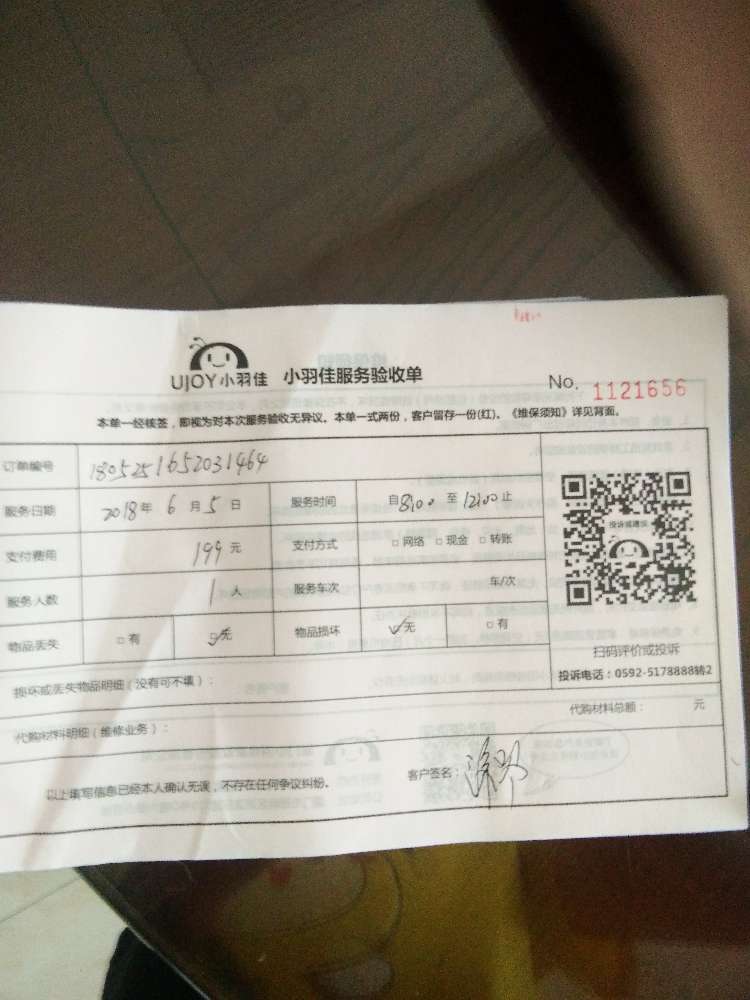 UJOY小羽佳 小羽佳服务验收单 No. 1121656
本单一经核签，即视为对本次服务验收无异议。本单一式两份，客户留存一份(红)。《维保须知》详见背面。
订单编号 1805251652031464
服务日期 2018年 6 月 5 日 服务时间 自8:00 至 12:00 止
支付费用 199 元 支付方式 □网络 □现金 □转账
服务人数 1 人 服务车次 车/次
物品丢失 □有 ☑无 物品损坏 ☑无 □有
投诉或建议
扫码评价或投诉
投诉电话：0592-5178888转2
损坏或丢失物品明细（没有可不填）：
代购材料明细（维修业务）： 代购材料总额： 元
以上填写信息已经本人确认无误，不存在任何争议纠纷。 客户签名：